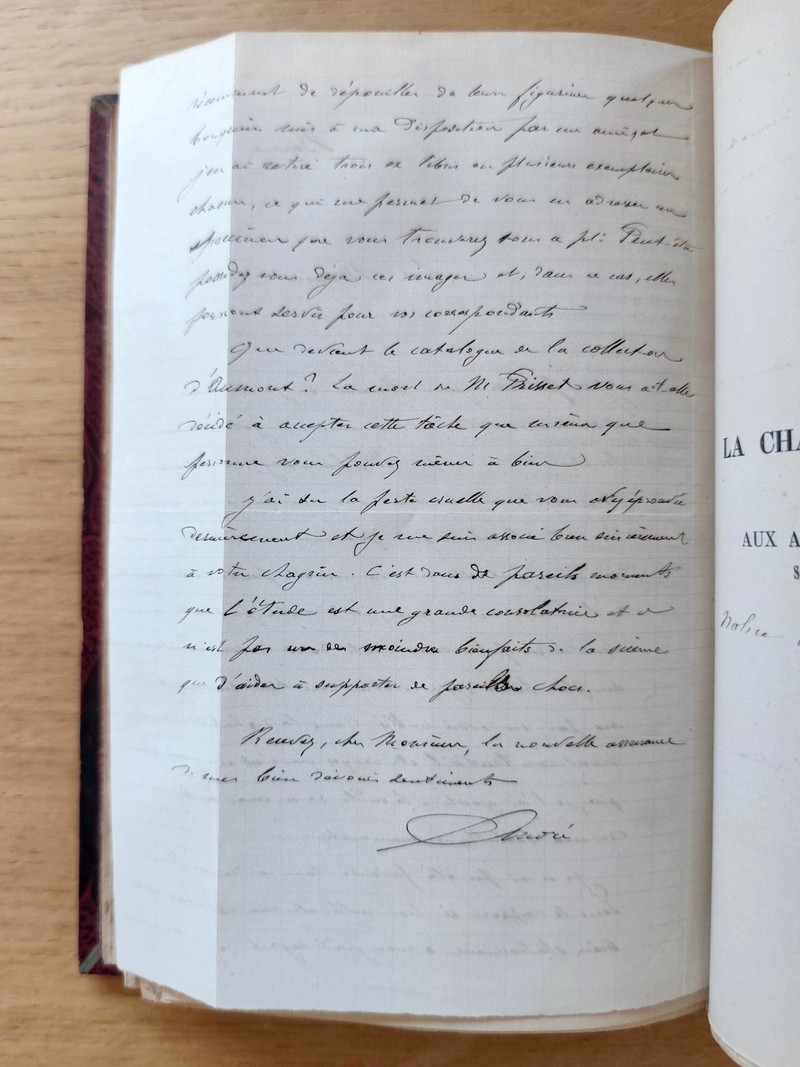 récemment de dépouiller de leur figurine quelques
bouquins mis à ma disposition par un ami, et
j'en ai retiré trois ex libris en plusieurs exemplaires
chacun, ce qui me permet de vous en adresser un
spécimen que vous trouverez sous ce pli. Peut-être
possédez vous déjà ces images et, dans ce cas, elles
pourront servir pour vos correspondants
Que devient le catalogue de la collection
d'Aumont? La mort de M. Brisset vous a t elle
décidé à accepter cette tâche que mieux que
personne vous pouvez mener à bien
J'ai su la perte cruelle que vous avez éprouvée
dernièrement et je me suis associé bien sincèrement
à votre chagrin. C'est dans de pareils moments
que l'étude est une grande consolatrice et ce
n'est pas un des moindres bienfaits de la sienne
que d'aider à supporter de pareils chocs.
Recevez, cher Monsieur, la nouvelle assurance
de mes bien dévoués sentiments
André
LA CHA
AUX A
S
Notice